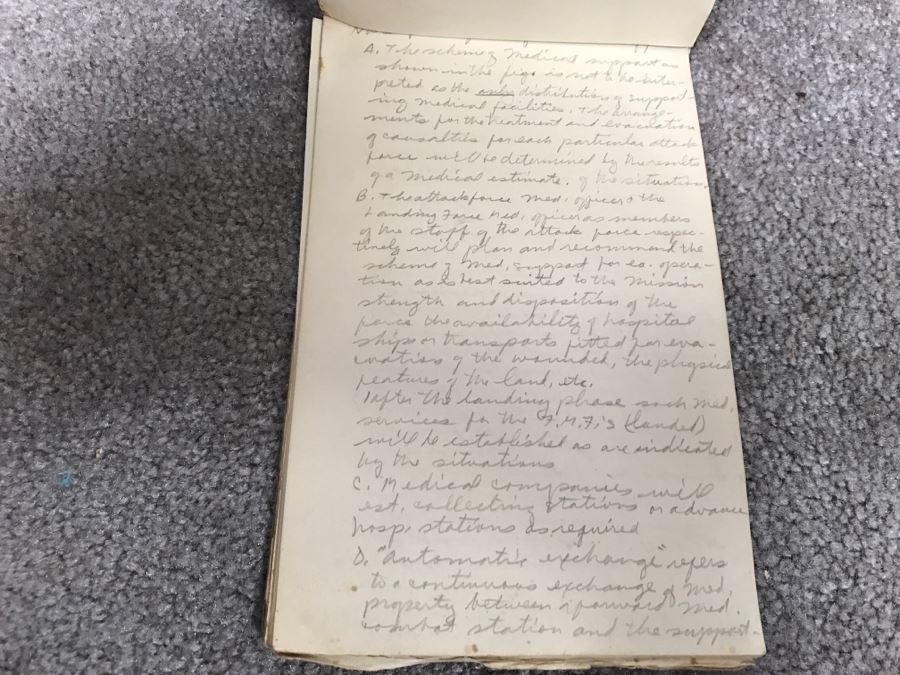 A. The scheme of medical support as
shown in the figs is not to be inter-
preted as the only distribution of support-
ing medical facilities. The arrange-
ments for the treatment and evacuation
of causalties for each particular attack
force will be determined by the results
of a medical estimate. of the situation.
B. The attack force med. officer & the
Landing Force Med. officer as members
of the staff of the attack force respec-
tively will plan and recommend the
scheme of med. support for ea. opera-
tion as is best suited to the mission
strength and disposition of the
force the availability of hospital
ships or transports fitted for eva-
cuation of the wounded, the physical
features of the land, etc.
After the landing phase such med.
services for the F.M.F.'s (landed)
will be established as are indicated
by the situations
C. Medical companies will
est. collecting stations or advance
hosp. stations as required
D. "Automatic exchange" refers
to a continuous exchange of med.
property between a forward med.
combat station and the support-